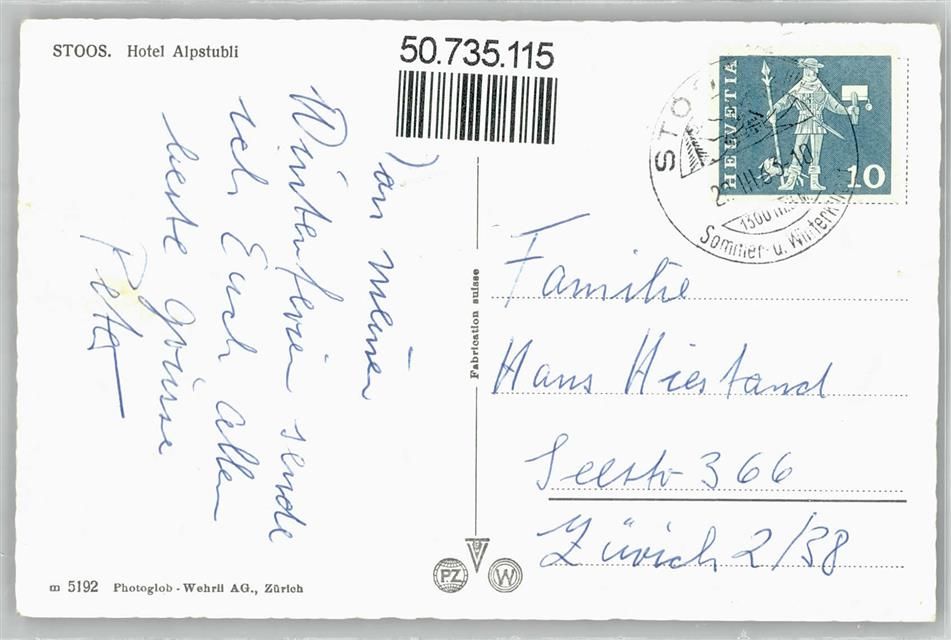 STOOS. Hotel Alpstubli
50.735.115
Von meinen
Winterferien sende
ich Euch allen
beste Grüsse
Peter
Fabrication suisse
STOOS
HELVETIA
10
1300 m
Sommer- u. Winterkurort
Familie
Hans Hiestand
Seestr 366
Zürich 2/38
PZ
W
m 5192 Photoglob - Wehrli AG., Zürich